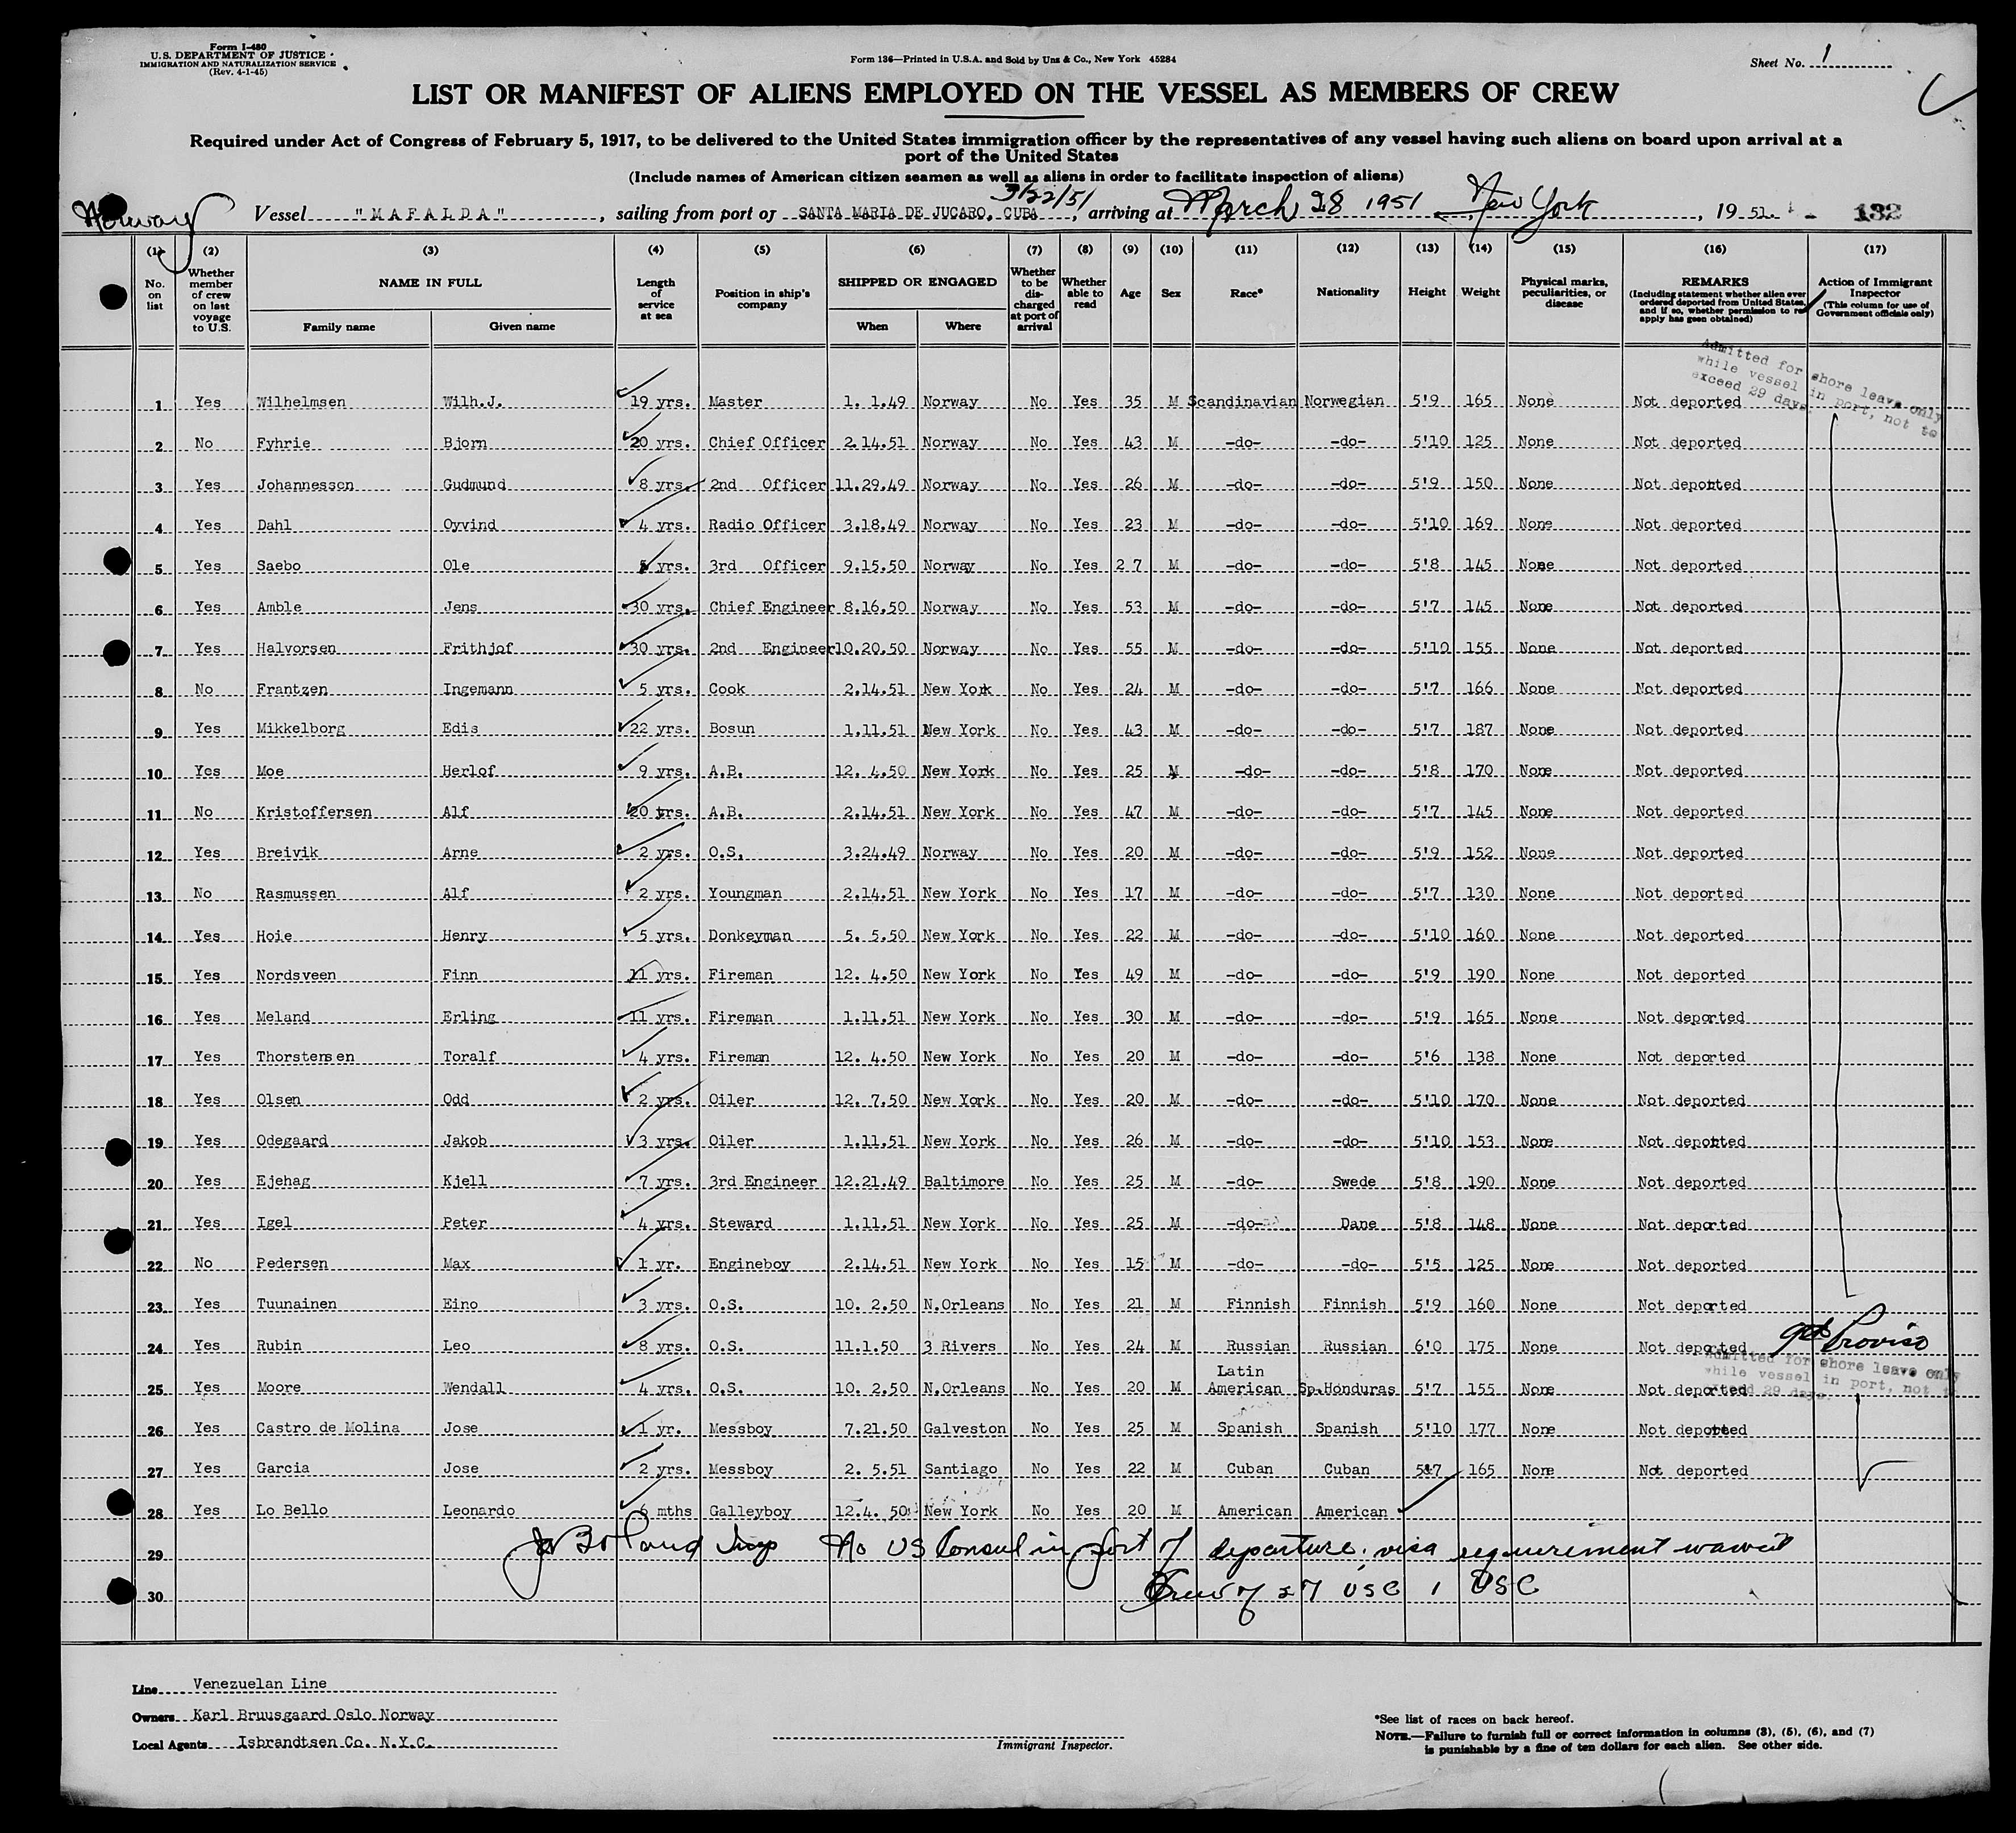 Form I-480
U.S. DEPARTMENT OF JUSTICE
IMMIGRATION AND NATURALIZATION SERVICE
(Rev. 4-1-45)
Form 136—Printed in U.S.A. and Sold by Unz & Co., New York 45284
Sheet No. 1
LIST OR MANIFEST OF ALIENS EMPLOYED ON THE VESSEL AS MEMBERS OF CREW
Required under Act of Congress of February 5, 1917, to be delivered to the United States immigration officer by the representatives of any vessel having such aliens on board upon arrival at a
port of the United States
(Include names of American citizen seamen as well as aliens in order to facilitate inspection of aliens)
3/22/51
Norway Vessel "MAFALDA", sailing from port of SANTA MARIA DE JUCARO, CUBA, arriving at March 28 1951 New York, 19 51. 132
(1) (2) (3) (4) (5) (6) (7) (8) (9) (10) (11) (12) (13) (14) (15) (16) (17)
No. on list
Whether member of crew on last voyage to U.S.
NAME IN FULL
Family name Given name
Length of service at sea
Position in ship's company
SHIPPED OR ENGAGED
When Where
Whether to be discharged at port of arrival
Whether able to read
Age
Sex
Race*
Nationality
Height
Weight
Physical marks, peculiarities, or disease
REMARKS
(Including statement whether alien ever ordered deported from United States, and if so, whether permission to reapply has been obtained)
Action of Immigrant Inspector
(This column for use of Government officials only)
Admitted for shore leave only
while vessel in port, not to
exceed 29 days.
1 Yes Wilhelmsen Wilh.J. 19 yrs. Master 1. 1.49 Norway No Yes 35 M Scandinavian Norwegian 5'9 165 None Not deported
2 No Fyhrie Bjorn 20 yrs. Chief Officer 2.14.51 Norway No Yes 43 M -do- -do- 5'10 125 None Not deported
3 Yes Johannesson Gudmund 8 yrs. 2nd Officer 11.29.49 Norway No Yes 26 M -do- -do- 5'9 150 None Not deported
4 Yes Dahl Oyvind 4 yrs. Radio Officer 3.18.49 Norway No Yes 23 M -do- -do- 5'10 169 None Not deported
5 Yes Saebo Ole yrs. 3rd Officer 9.15.50 Norway No Yes 27 M -do- -do- 5'8 145 None Not deported
6 Yes Amble Jens 30 yrs. Chief Engineer 8.16.50 Norway No Yes 53 M -do- -do- 5'7 145 None Not deported
7 Yes Halvorsen Frithjof 30 yrs. 2nd Engineer 10.20.50 Norway No Yes 55 M -do- -do- 5'10 155 None Not deported
8 No Frantzen Ingemann 5 yrs. Cook 2.14.51 New York No Yes 24 M -do- -do- 5'7 166 None Not deported
9 Yes Mikkelborg Edis 22 yrs. Bosun 1.11.51 New York No Yes 43 M -do- -do- 5'7 187 None Not deported
10 Yes Moe Herlof 9 yrs. A.B. 12. 4.50 New York No Yes 25 M -do- -do- 5'8 170 None Not deported
11 No Kristoffersen Alf 20 trs. A.B. 2.14.51 New York No Yes 47 M -do- -do- 5'7 145 None Not deported
12 Yes Breivik Arne 2 yrs. O.S. 3.24.49 Norway No Yes 20 M -do- -do- 5'9 152 None Not deported
13 No Rasmussen Alf 2 yrs. Youngman 2.14.51 New York No Yes 17 M -do- -do- 5'7 130 None Not deported
14 Yes Hoie Henry 5 yrs. Donkeyman 5. 5.50 New York No Yes 22 M -do- -do- 5'10 160 None Not deported
15 Yes Nordsveen Finn 11 yrs. Fireman 12. 4.50 New York No Yes 49 M -do- -do- 5'9 190 None Not deported
16 Yes Meland Erling 11 yrs. Fireman 1.11.51 New York No Yes 30 M -do- -do- 5'9 165 None Not deported
17 Yes Thorstensen Toralf 4 yrs. Fireman 12. 4.50 New York No Yes 20 M -do- -do- 5'6 138 None Not deported
18 Yes Olsen Odd 2 yrs. Oiler 12. 7.50 New York No Yes 20 M -do- -do- 5'10 170 None Not deported
19 Yes Odegaard Jakob 3 yrs. Oiler 1.11.51 New York No Yes 26 M -do- -do- 5'10 153 None Not deported
20 Yes Ejehag Kjell 7 yrs. 3rd Engineer 12.21.49 Baltimore No Yes 25 M -do- Swede 5'8 190 None Not deported
21 Yes Igel Peter 4 yrs. Steward 1.11.51 New York No Yes 25 M -do- Dane 5'8 148 None Not deported
22 No Pedersen Max 1 yr. Engineboy 2.14.51 New York No Yes 15 M -do- -do- 5'5 125 None Not deported
23 Yes Tuunainen Eino 3 yrs. O.S. 10. 2.50 N.Orleans No Yes 21 M Finnish Finnish 5'9 160 None Not deported
24 Yes Rubin Leo 8 yrs. O.S. 11.1.50 3 Rivers No Yes 24 M Russian Russian 6'0 175 None Not deported 9th Proviso
Admitted for shore leave only
while vessel in port, not to
exceed 29 days.
25 Yes Moore Wendall 4 yrs. O.S. 10. 2.50 N.Orleans No Yes 20 M Latin American Sp.Honduras 5'7 155 None Not deported
26 Yes Castro de Molina Jose 1 yr. Messboy 7.21.50 Galveston No Yes 25 M Spanish Spanish 5'10 177 None Not deported
27 Yes Garcia Jose 2 yrs. Messboy 2. 5.51 Santiago No Yes 22 M Cuban Cuban 5'7 165 None Not deported
28 Yes Lo Bello Leonardo 6 mths Galleyboy 12.4. 50 New York No Yes 20 M American American
29 Borland Insp No US Consul in port of departure. visa requirement
30 Crew of 27 USC 1 USC
Line Venezuelan Line
Owners Karl Bruusgaard Oslo Norway
Local Agents Isbrandtsen Co. N.Y.C.
Immigrant Inspector.
*See list of races on back hereof.
NOTE.—Failure to furnish full or correct information in columns (3), (5), (6), and (7)
is punishable by a fine of ten dollars for each alien. See other side.